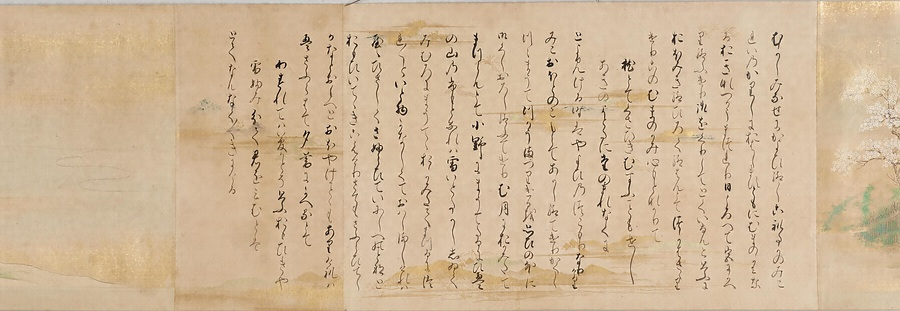 むかしみなせにかよひ給しこれたかのみこ
れいのかりしにおはしますともにむまのかみなる
おきなつかうまつれり日ころへて宮にかへ
りたまふけり御をくりしてとくいなんとおもふに
おほみきたまひろく給はんとてつかはさゝり
けりこのむまのかみ心もとなかりて
枕とて草ひきむすふこともせし
あきのよとたにたのまれなくに
とよみける時はやよひのつこもりなりけり
みこおほとのこもらてあかし給てけりかくし
つゝまうてつかうまつりけるを思ひのほかに
御くしおろし給てけりむ月におかみたて
まつらんとて小野にまうてたるにひえ
の山のふもとなれは雪いとたかししゐて
みむろにまうてゝおかみたてまつるにつれ
〱といと物かなしくておはしましけれは
やゝひさしくさふらひていにしへの事なと
おもひいてきこえけりさてもさふらひてし
かなとおもへとおほやけことゝもありけれは
えさふらはて夕暮にかへるとて
わすれては夢かとそ思ふおもひきや
雪ふみわけて君をみむとは
とてなんなく〱きにける